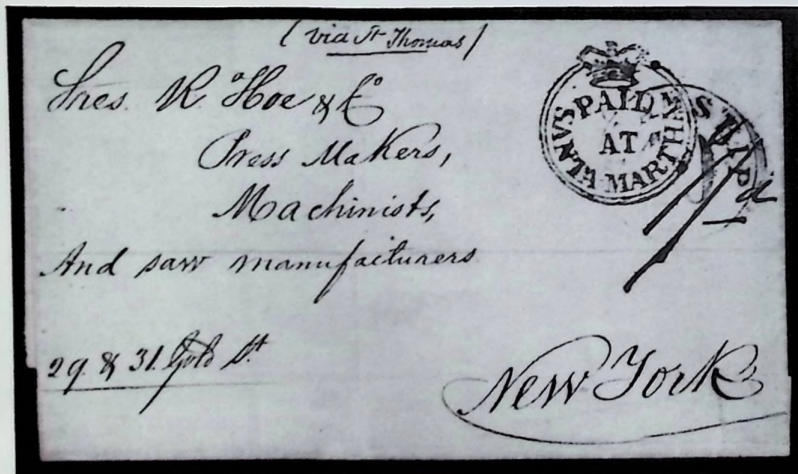 (via St Thomas)
Sres. R Hoe & Co
Press Makers,
Machinists,
And saw manufacturers
29 & 31. Gold St
New York
PAID
AT
SANTA MARTHA